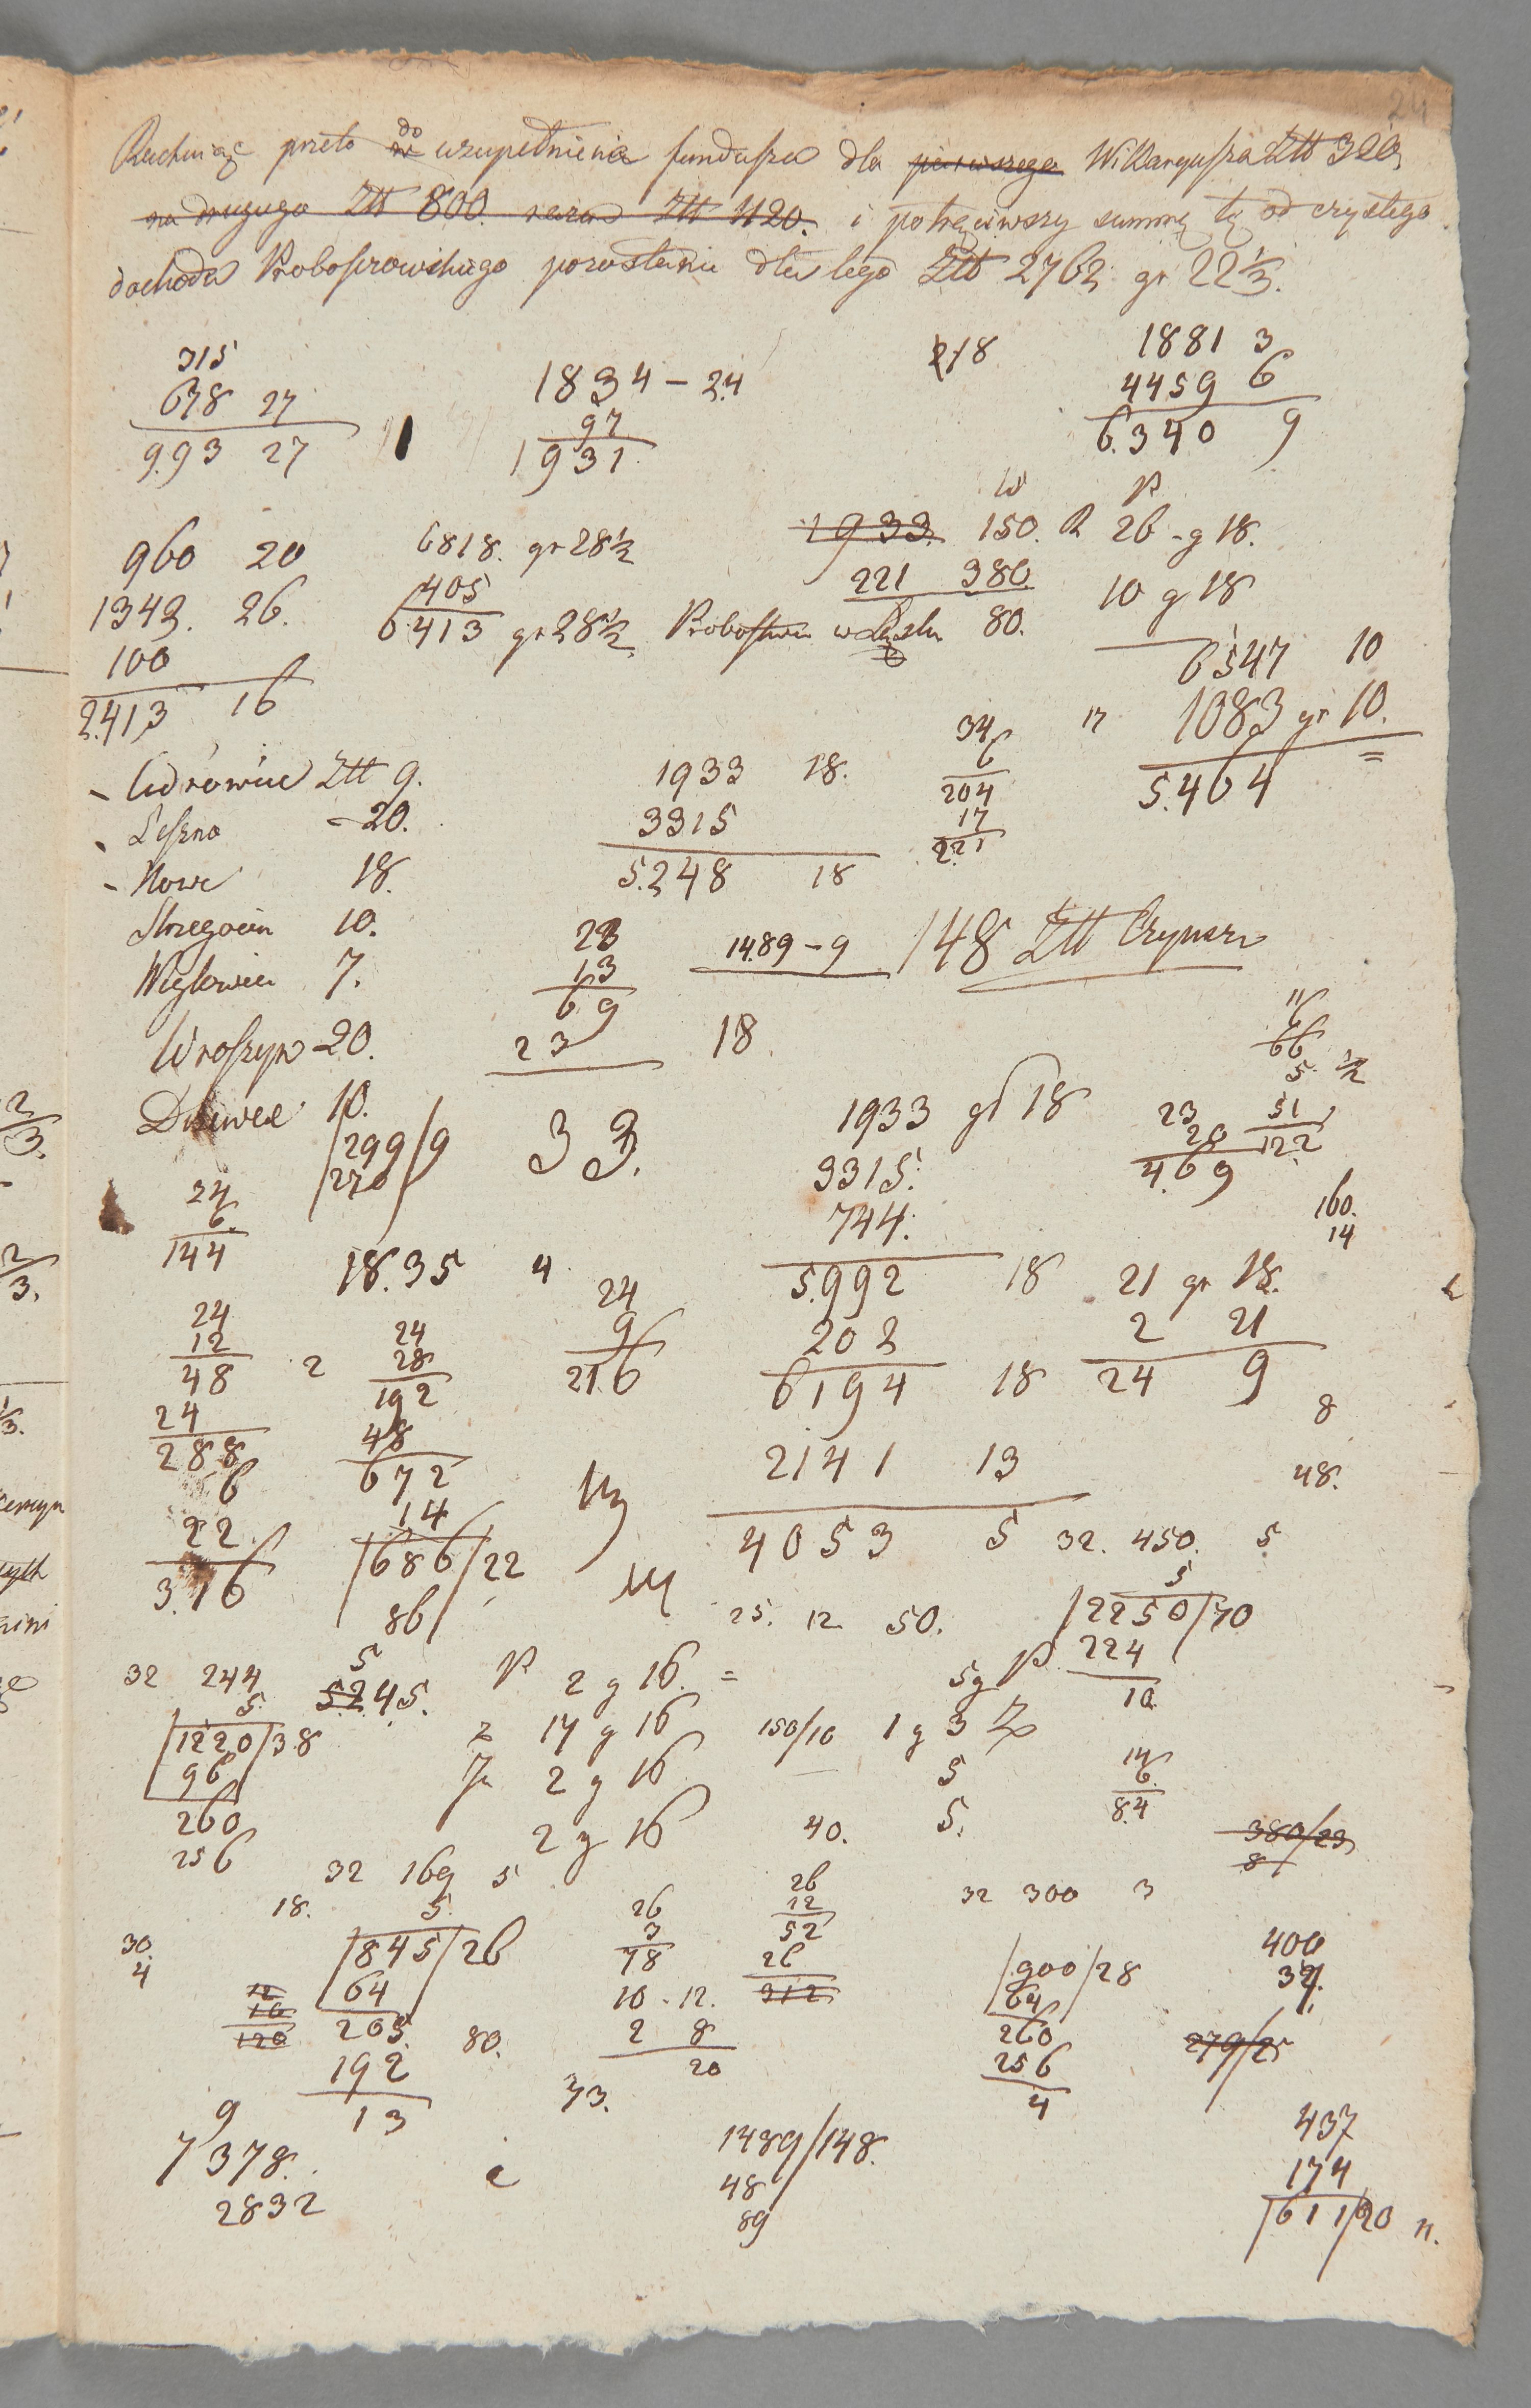 24
Rachując przeto do uzupełnienia funduszu dla pierwszego Wikaryusza Ztt 320,
na drugugo Ztt 800. razem Ztt 1120. i potrąciwszy summę tę od czystego
dochodu Proboszczowskiego pozostanie dla tego Ztt 2762 gr 22 1/3.
315
678 27
993 27
1834 - 24
97
1931
218
1881 3
4459 6
6340 9
960 20
1343. 26.
100
2413 16
6818. gr 28 1/2
405
6413 gr 28 1/2
1933. 150. R 26 - g 18.
221 380
80. 10 g 18
6547 10
1083 gr 10.
5.464 =
Ztt 9.
Leszno - 20.
Nowe 18.
Strzegocin 10.
7.
Wroszyn - 20.
10.
1933 18.
3315
5248 18
34
6
204
17
221
17
23
13
69
23
1489 - 9
148 Ztt
18.
11
6
66
5 1/2
51
122
299/9
270
33.
1933 gr 18
3315.
744.
5992 18
202
6194 18
2141 13
4053 5
23
20
4.69
160.
14
21 gr 18.
2 21
24 9
24
6.
144
18.35 4
24
12
48
24
288
6
22
3.16
2
24
28
192
48
672
14
686/22
86
24
9
216
8
48.
32. 450. 5
5
2250/70
224
10
25. 12. 50.
32 244
5.
1220/38
96
260
256
5
5245.
2 g 16. =
17 g 16
2 g 16
2 g 16
150/10 1 g 3
5
40. 5.
14
6
84
380/23
8
32 169 5
18. 5.
845/26
64
205
192
13
30.
4
12
10
120
80.
26
3
78
10 - 12.
2 8
20
26
12
52
26
312
32 300 3
900/28
64
260
256
4
400
37.
279/25
73.
9
7 378.
2832
1489/148.
48
89
437
174
611/20 n.